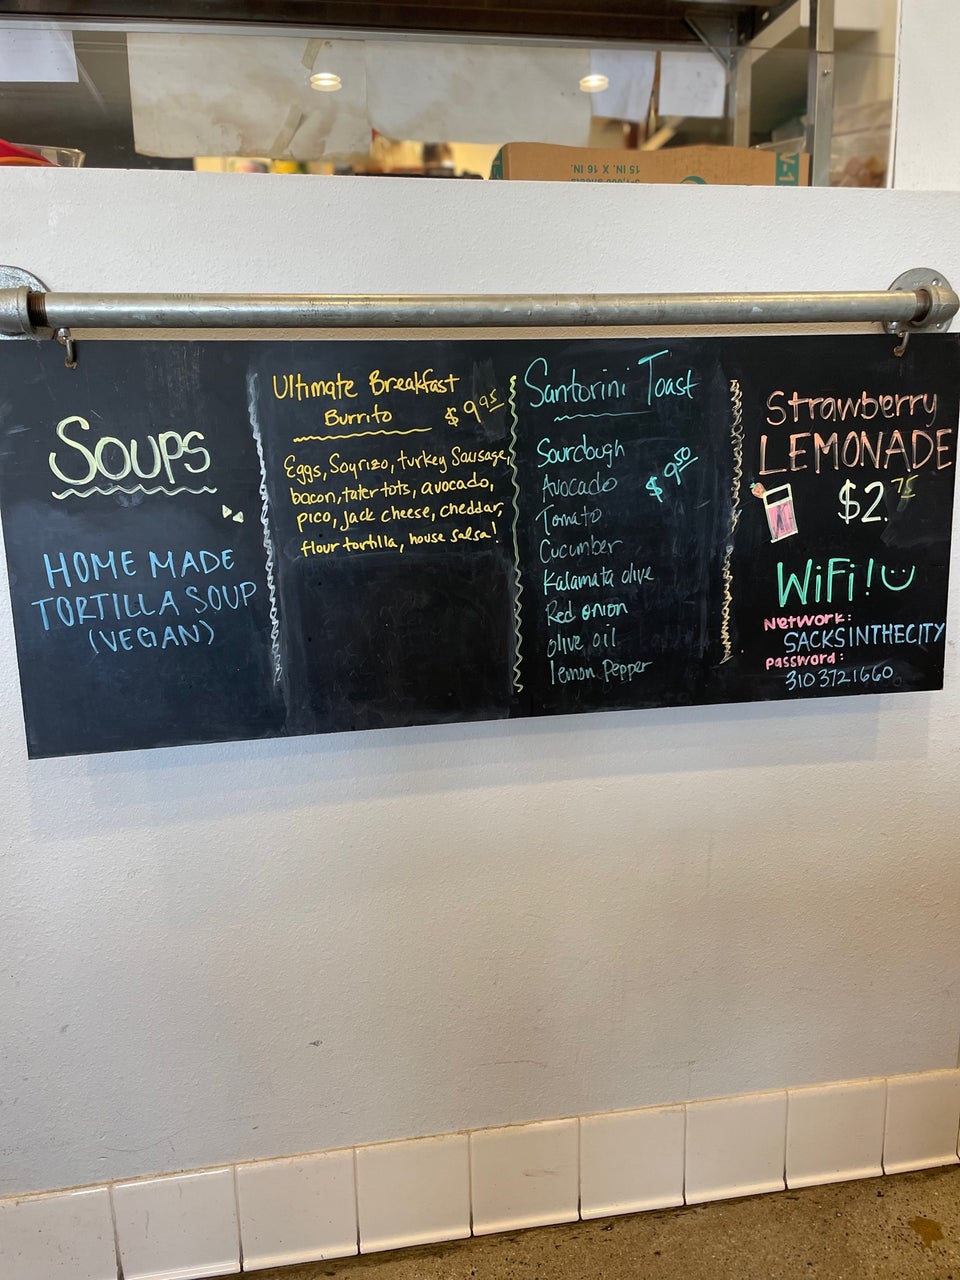 15 IN. X 16 IN.
V-1
Soups
HOME MADE
TORTILLA SOUP
(VEGAN)
Ultimate Breakfast
Burrito $9.95
Eggs, Soyrizo, turkey Sausage,
bacon, tater tots, avocado,
pico, jack cheese, cheddar,
flour tortilla, house salsa!
Santorini Toast
$9.50
Sourdough
Avocado
Tomato
Cucumber
Kalamata olive
Red onion
olive oil
lemon pepper
Strawberry
LEMONADE
$2.75
WiFi!
Network:
SACKSINTHECITY
Password:
3103721660